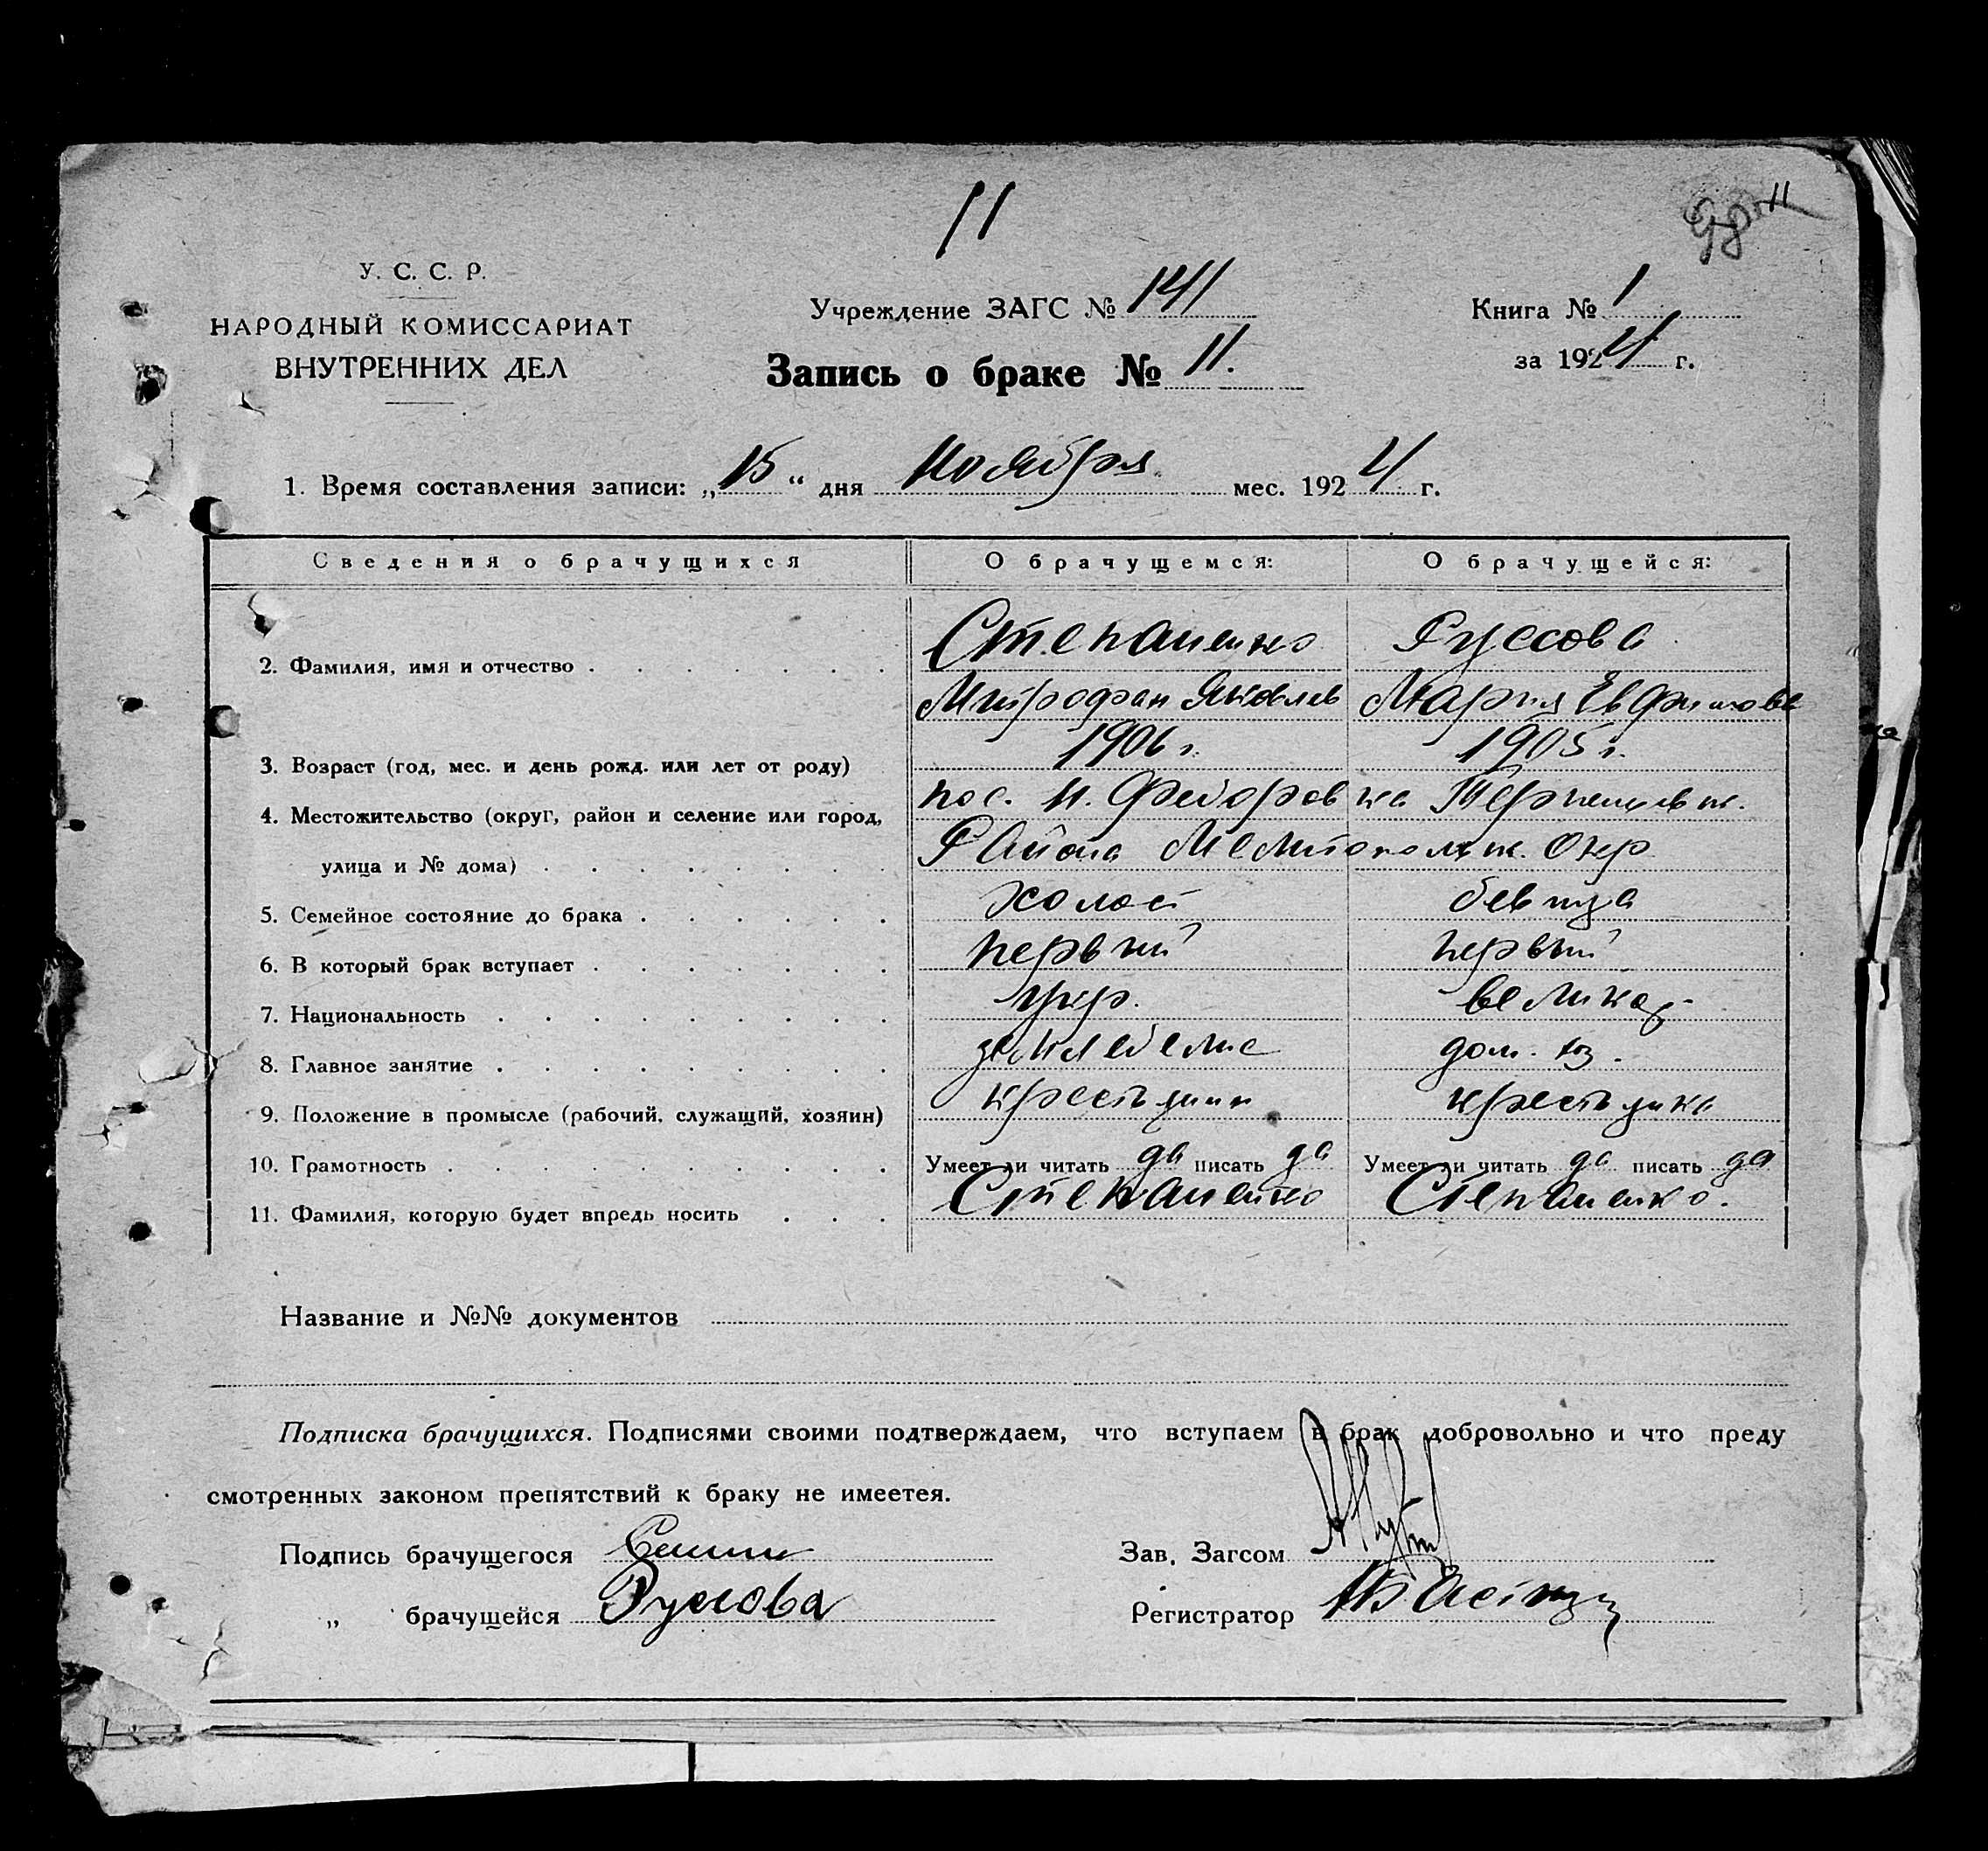 11
98 11
У. С. С. Р.
НАРОДНЫЙ КОМИССАРИАТ
ВНУТРЕННИХ ДЕЛ
Учреждение ЗАГС № 141
Книга № 1
Запись о браке № 11.
за 1924 г.
1. Время составления записи: „15“ дня Ноября мес. 1924 г.
Сведения о брачущихся О брачущемся: О брачущейся:
2. Фамилия, имя и отчество Степаненко Руссова
Митрофан Яковлев Мария Евфимова
3. Возраст (год, мес. и день рожд. или лет от роду) 1906 г. 1905 г.
4. Местожительство (округ, район и селение или город, пос. Н. Федоровка Терпеновск.
улица и № дома) Района Мелитопольск. Окр.
5. Семейное состояние до брака холост девица
6. В который брак вступает первый первый
7. Национальность укр. великор.
8. Главное занятие земледелие дом. хоз.
9. Положение в промысле (рабочий, служащий, хозяин) крестьянин крестьянка
10. Грамотность Умеет ли читать да писать да Умеет ли читать да писать да
11. Фамилия, которую будет впредь носить Степаненко Степаненко.
Название и №№ документов
Подписка брачущихся. Подписями своими подтверждаем, что вступаем в брак добровольно и что преду
смотренных законом препятствий к браку не имеетея.
Подпись брачущегося Зав. Загсом
„ брачущейся Русова Регистратор